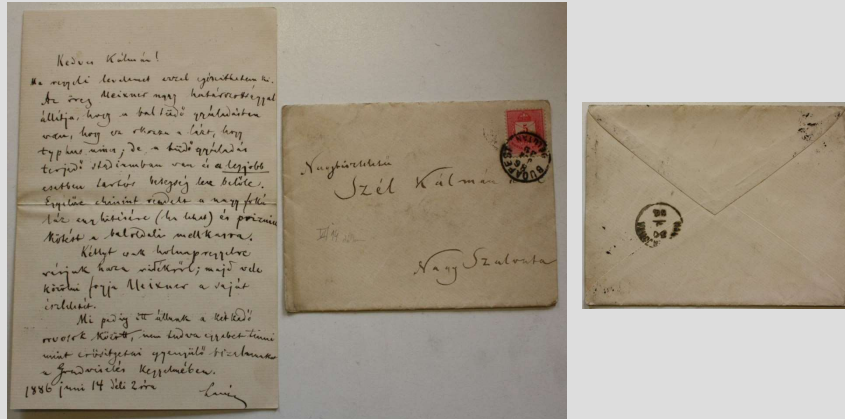 Kedves Kálmán!
Ma reggeli levelemet ezzel egészíthetem ki.
Az öreg Meixner nagy határozottsággal
állítja, hogy a baltüdő gyuladásban
van, hogy ez okozza a lázt, hogy
typhus nincs; de a tüdőgyuladás
terjedő stadiumban van és a legjobb
esetben tartós betegség lesz belőle.
Egyelőre chinint rendelt a nagy fokú
láz enyhítésére (ha lehet) és priznic
kötést a baloldali mellkasra.
Kétlyt csak holnap reggelre
várjuk haza vidékről; majd vele
közölni fogja Meixner a saját
észleletét.
Mi pedig itt állunk a kétkedő
orvosok között, nem tudva egyebet tenni
mint erősítgetni gyengülő bizalmunkat
a Gondviselés kegyelmében.
1886 juni 14 déli 2 óra
Nagytiszteletű
Szél Kálmán
Nagy Szalonta
5
BUDAPEST
86